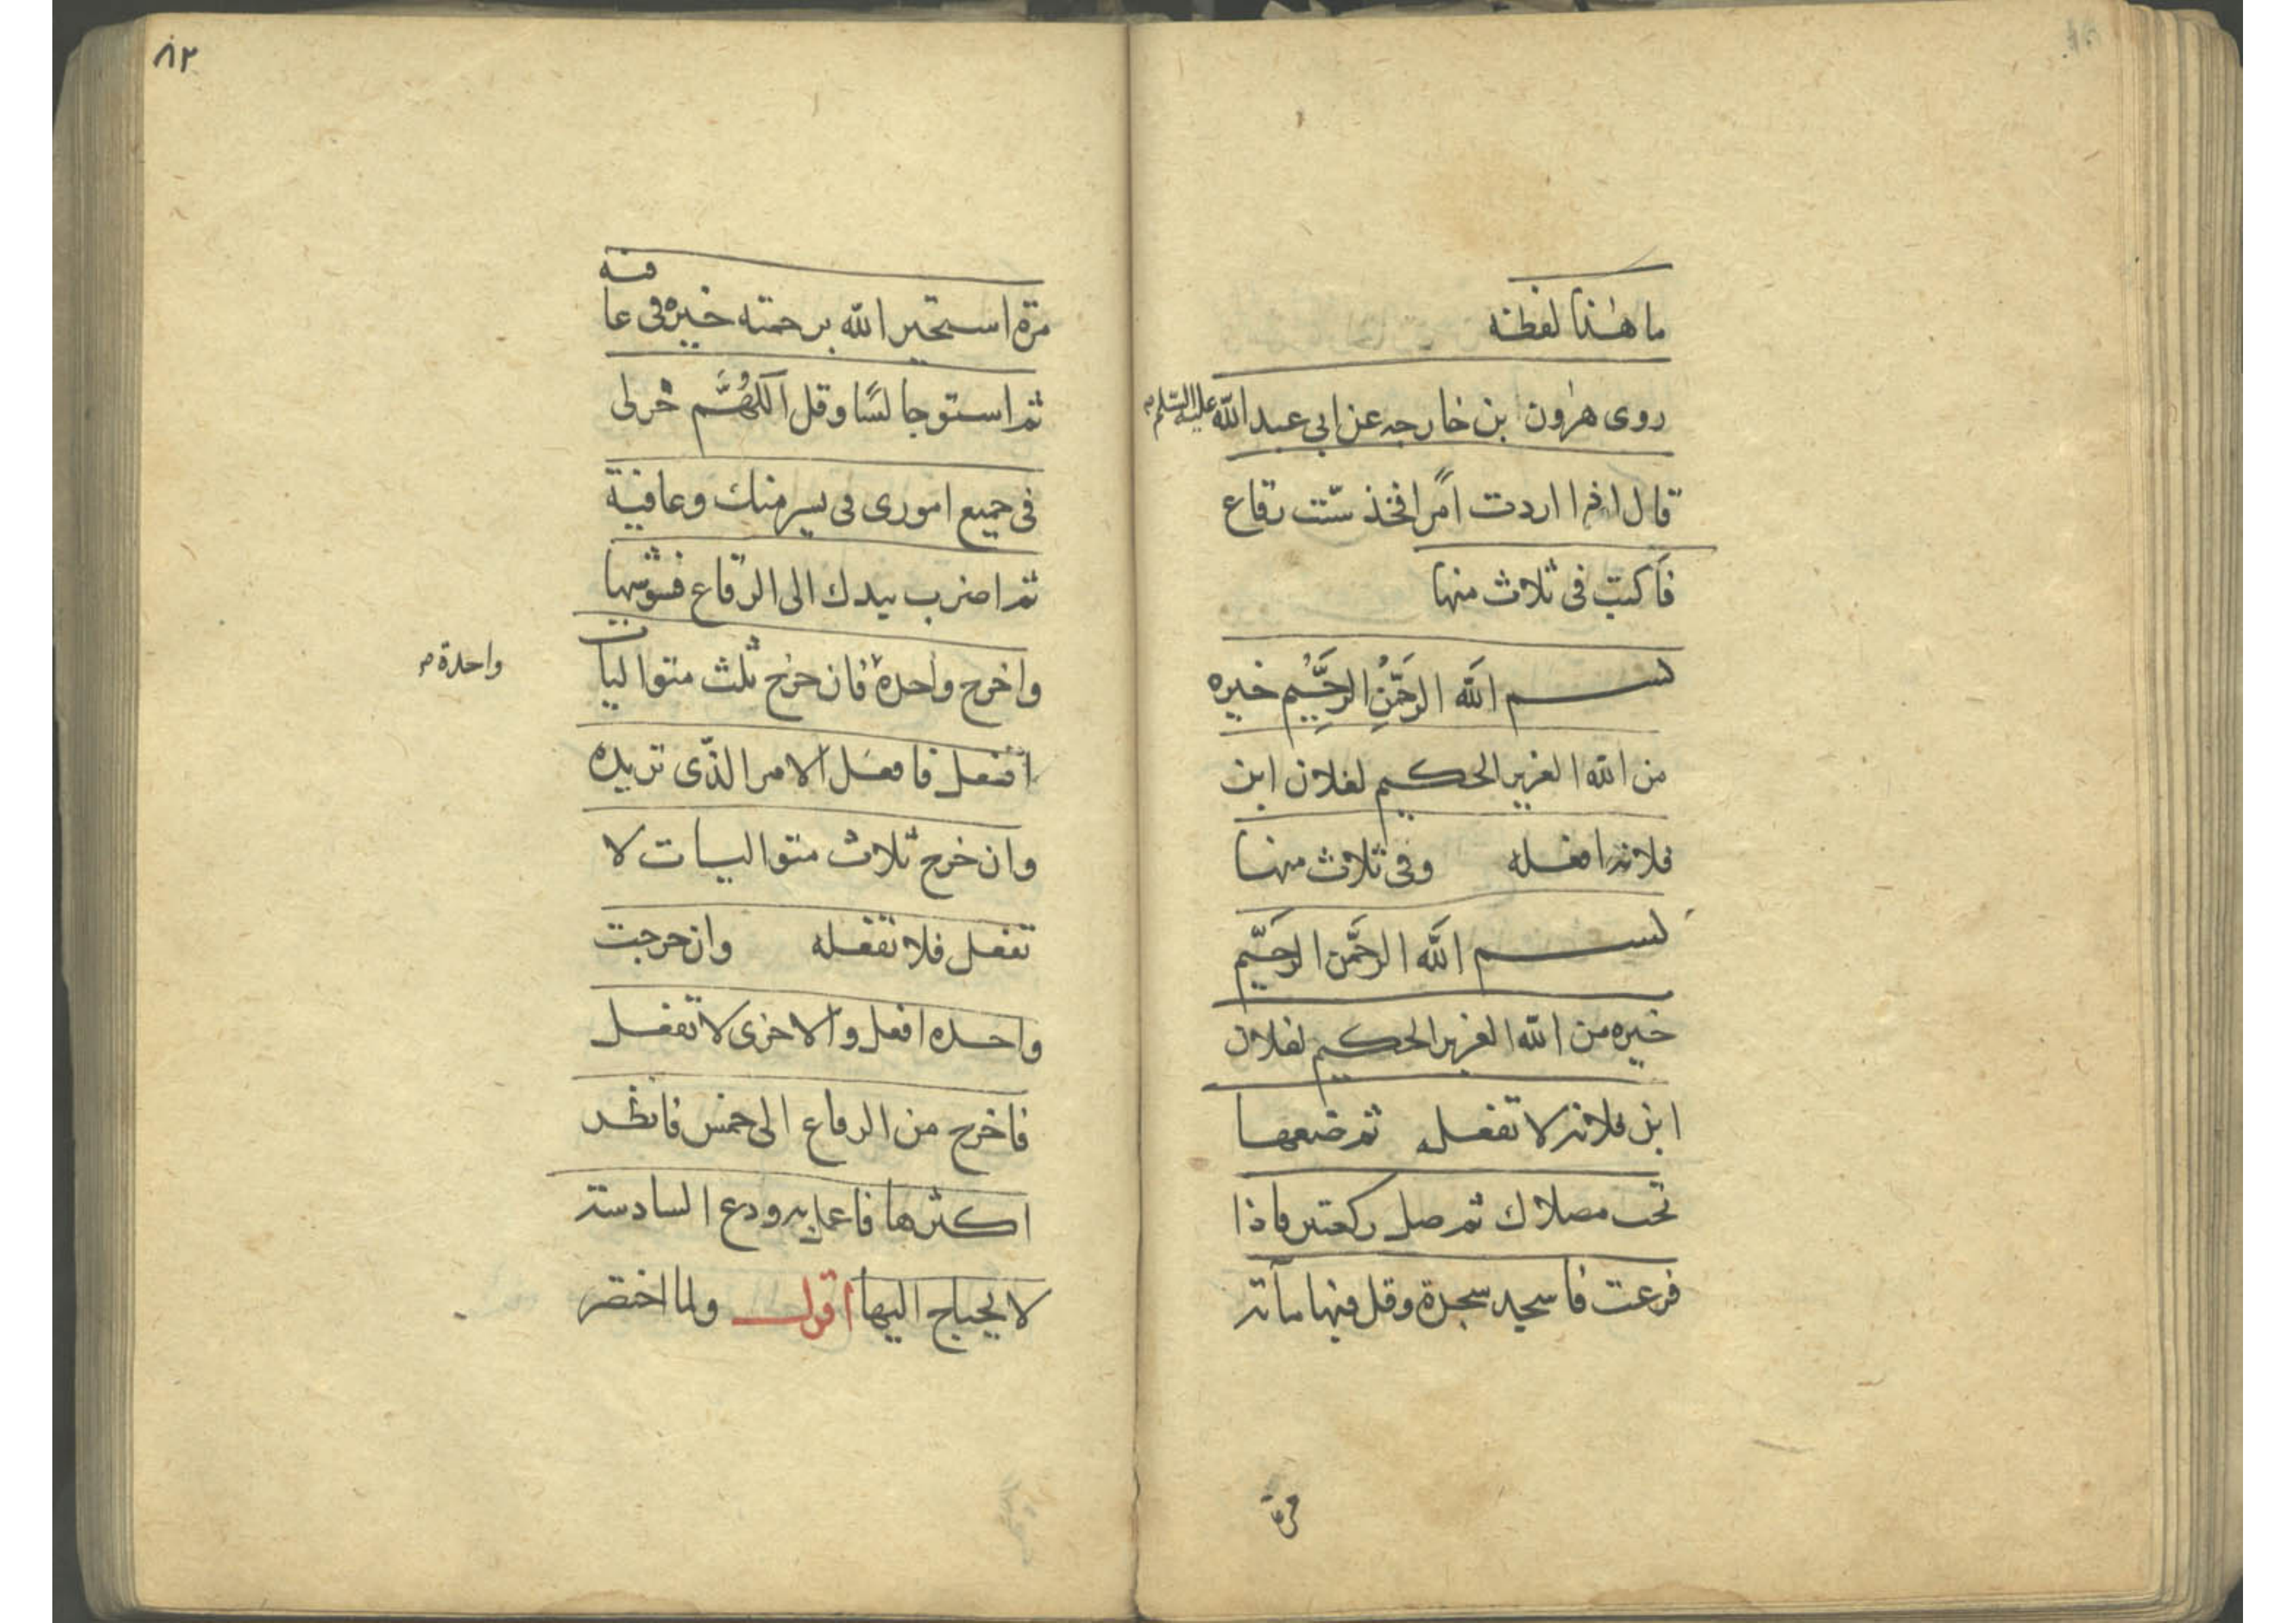 ما هذا لفظه
روى هرون بن خارجه عن ابي عبد الله عليه السلم
قال اذا اردت امرا فخذ ستّ رقاع
فاكتب فى ثلاث منها
بسم الله الرحمن الرحيم خيره
من الله العزيز الحكيم لفلان ابن
فلانه افعله وفى ثلاث منها
بسم الله الرحمن الرحيم
خيره من الله العزيز الحكيم لفلان
ابن فلانه لا تفعله ثم ضعها
تحت مصلاك ثم صل ركعتين فاذا
فرغت فاسجد سجدة وقل فيها مأته
مرة
٨٢
مرة استخير الله برحمته خيره فى عافيه
ثم استو جالسًا وقل اللهُمَّ خر لى
فى جميع امورى فى يسر منك وعافية
ثم اضرب بيدك الى الرقاع فشوشها
واخرج واحدة فان خرج ثلث متواليات
واحدة
افعل فافعل الامر الذى تريده
وان خرج ثلاث متواليات لا
تفعل فلا تفعله وان خرجت
واحده افعل والاخرى لا تفعل
فاخرج من الرقاع الى خمس فانظر
اكثرها فاعمل به ودع السادسة
لا يحتاج اليها اقول ولما اختصر